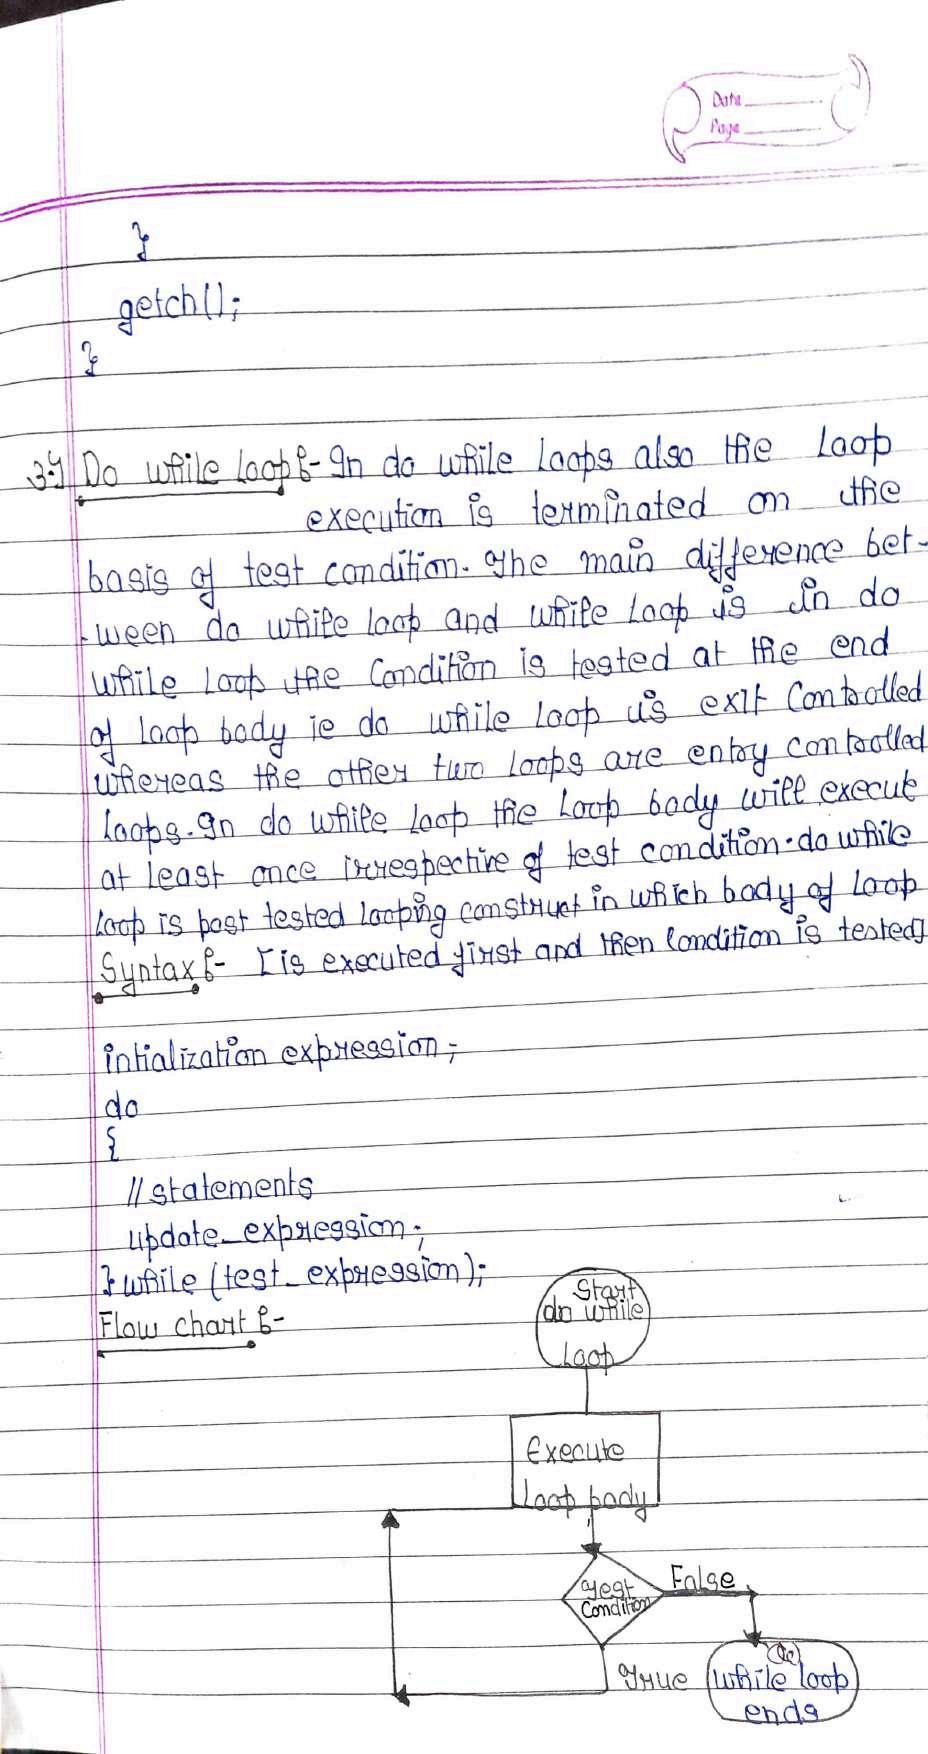 Date
Page
}
getch();
}
3.) Do while loop :- In do while loops also the loop
execution is terminated on the
basis of test condition. The main difference bet-
-ween do while loop and while loop is in do
while loop the condition is tested at the end
of loop body ie do while loop is exit controlled
whereas the other two loops are entry controlled
loops. In do while loop the loop body will execute
at least once irrespective of test condition. do while
loop is post tested looping construct in which body of loop
Syntax :- [is executed first and then condition is tested]
intialization expression;
do
{
//statements
update_expression;
} while (test_expression);
Flow chart :-
Start
do while
loop
Execute
loop body
Test
Condition
False
True
do
while loop
ends